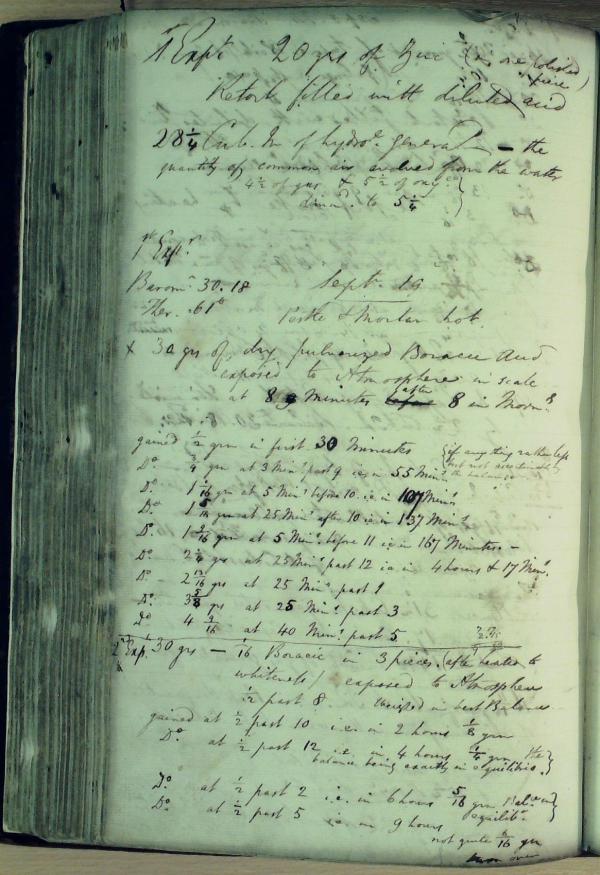 Expt. 20 grs of Zinc (in one polished piece)
Retort filled with diluted acid
28 1/4 Cub. In of hydro. general - the
quantity of common air evolved from the water
4 1/2 of gas & 5 1/2 of oxy
dimd. to 5 1/4
1st Expt.
Barom. 30.18 Sept. 19
Ther. 61°
Pestle & Mortar hot.
x 30 grs of dry pulverized Boracic Acid
exposed to Atmosphere in scale
at 8 Minutes after 8 in Morng.
gained 1/2 grn in first 30 Minutes (if any thing rather less
but not ascertainable
Do. 3/4 grn at 3 Mins. past 9 i.e. in 55 Mins.
Do. 1 1/16 grn at 5 Mins. before 10 i.e. in 107 Mins.
Do. 1 5/16 grn at 25 Mins. after 10 i.e. in 137 Mins.
Do. 1 9/16 grn at 5 Mins. before 11 i.e. in 167 Minutes. -
Do. 2 1/4 grs at 25 Mins past 12 i.e. in 4 hours & 17 Mins.
Do. 2 13/16 grs at 25 Mins past 1
Do. 3 5/8 grs at 25 Mins. past 3
Do 4 9/16 at 40 Mins. past 5
2d Exp. 30 grs - 1/16 Boracic in 3 pieces (after heated to
whiteness) exposed to Atmosphere
1/2 past 8. Weighed in best Balance
gained at 1/2 past 10 i.e. in 2 hours 1/8 grn
Do. at 1/2 past 12 i.e. in 4 hours 1/4 grn the
balance being exactly in equilibrio.
Do. at 1/2 past 2 i.e. in 6 hours 5/16 grn Bal. in
equilib.
Do. at 1/2 past 5 i.e. in 9 hours
not quite /16 grn
turn over